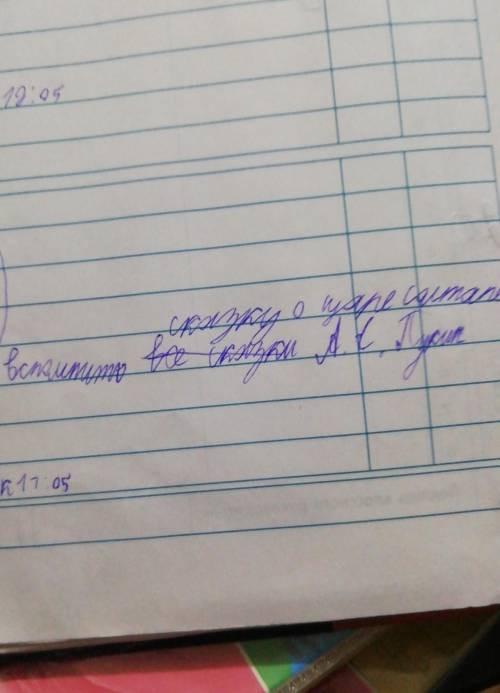 12:05
сказку о царе салтане
вспомнить все сказки А. С. Пукин
к 17:05